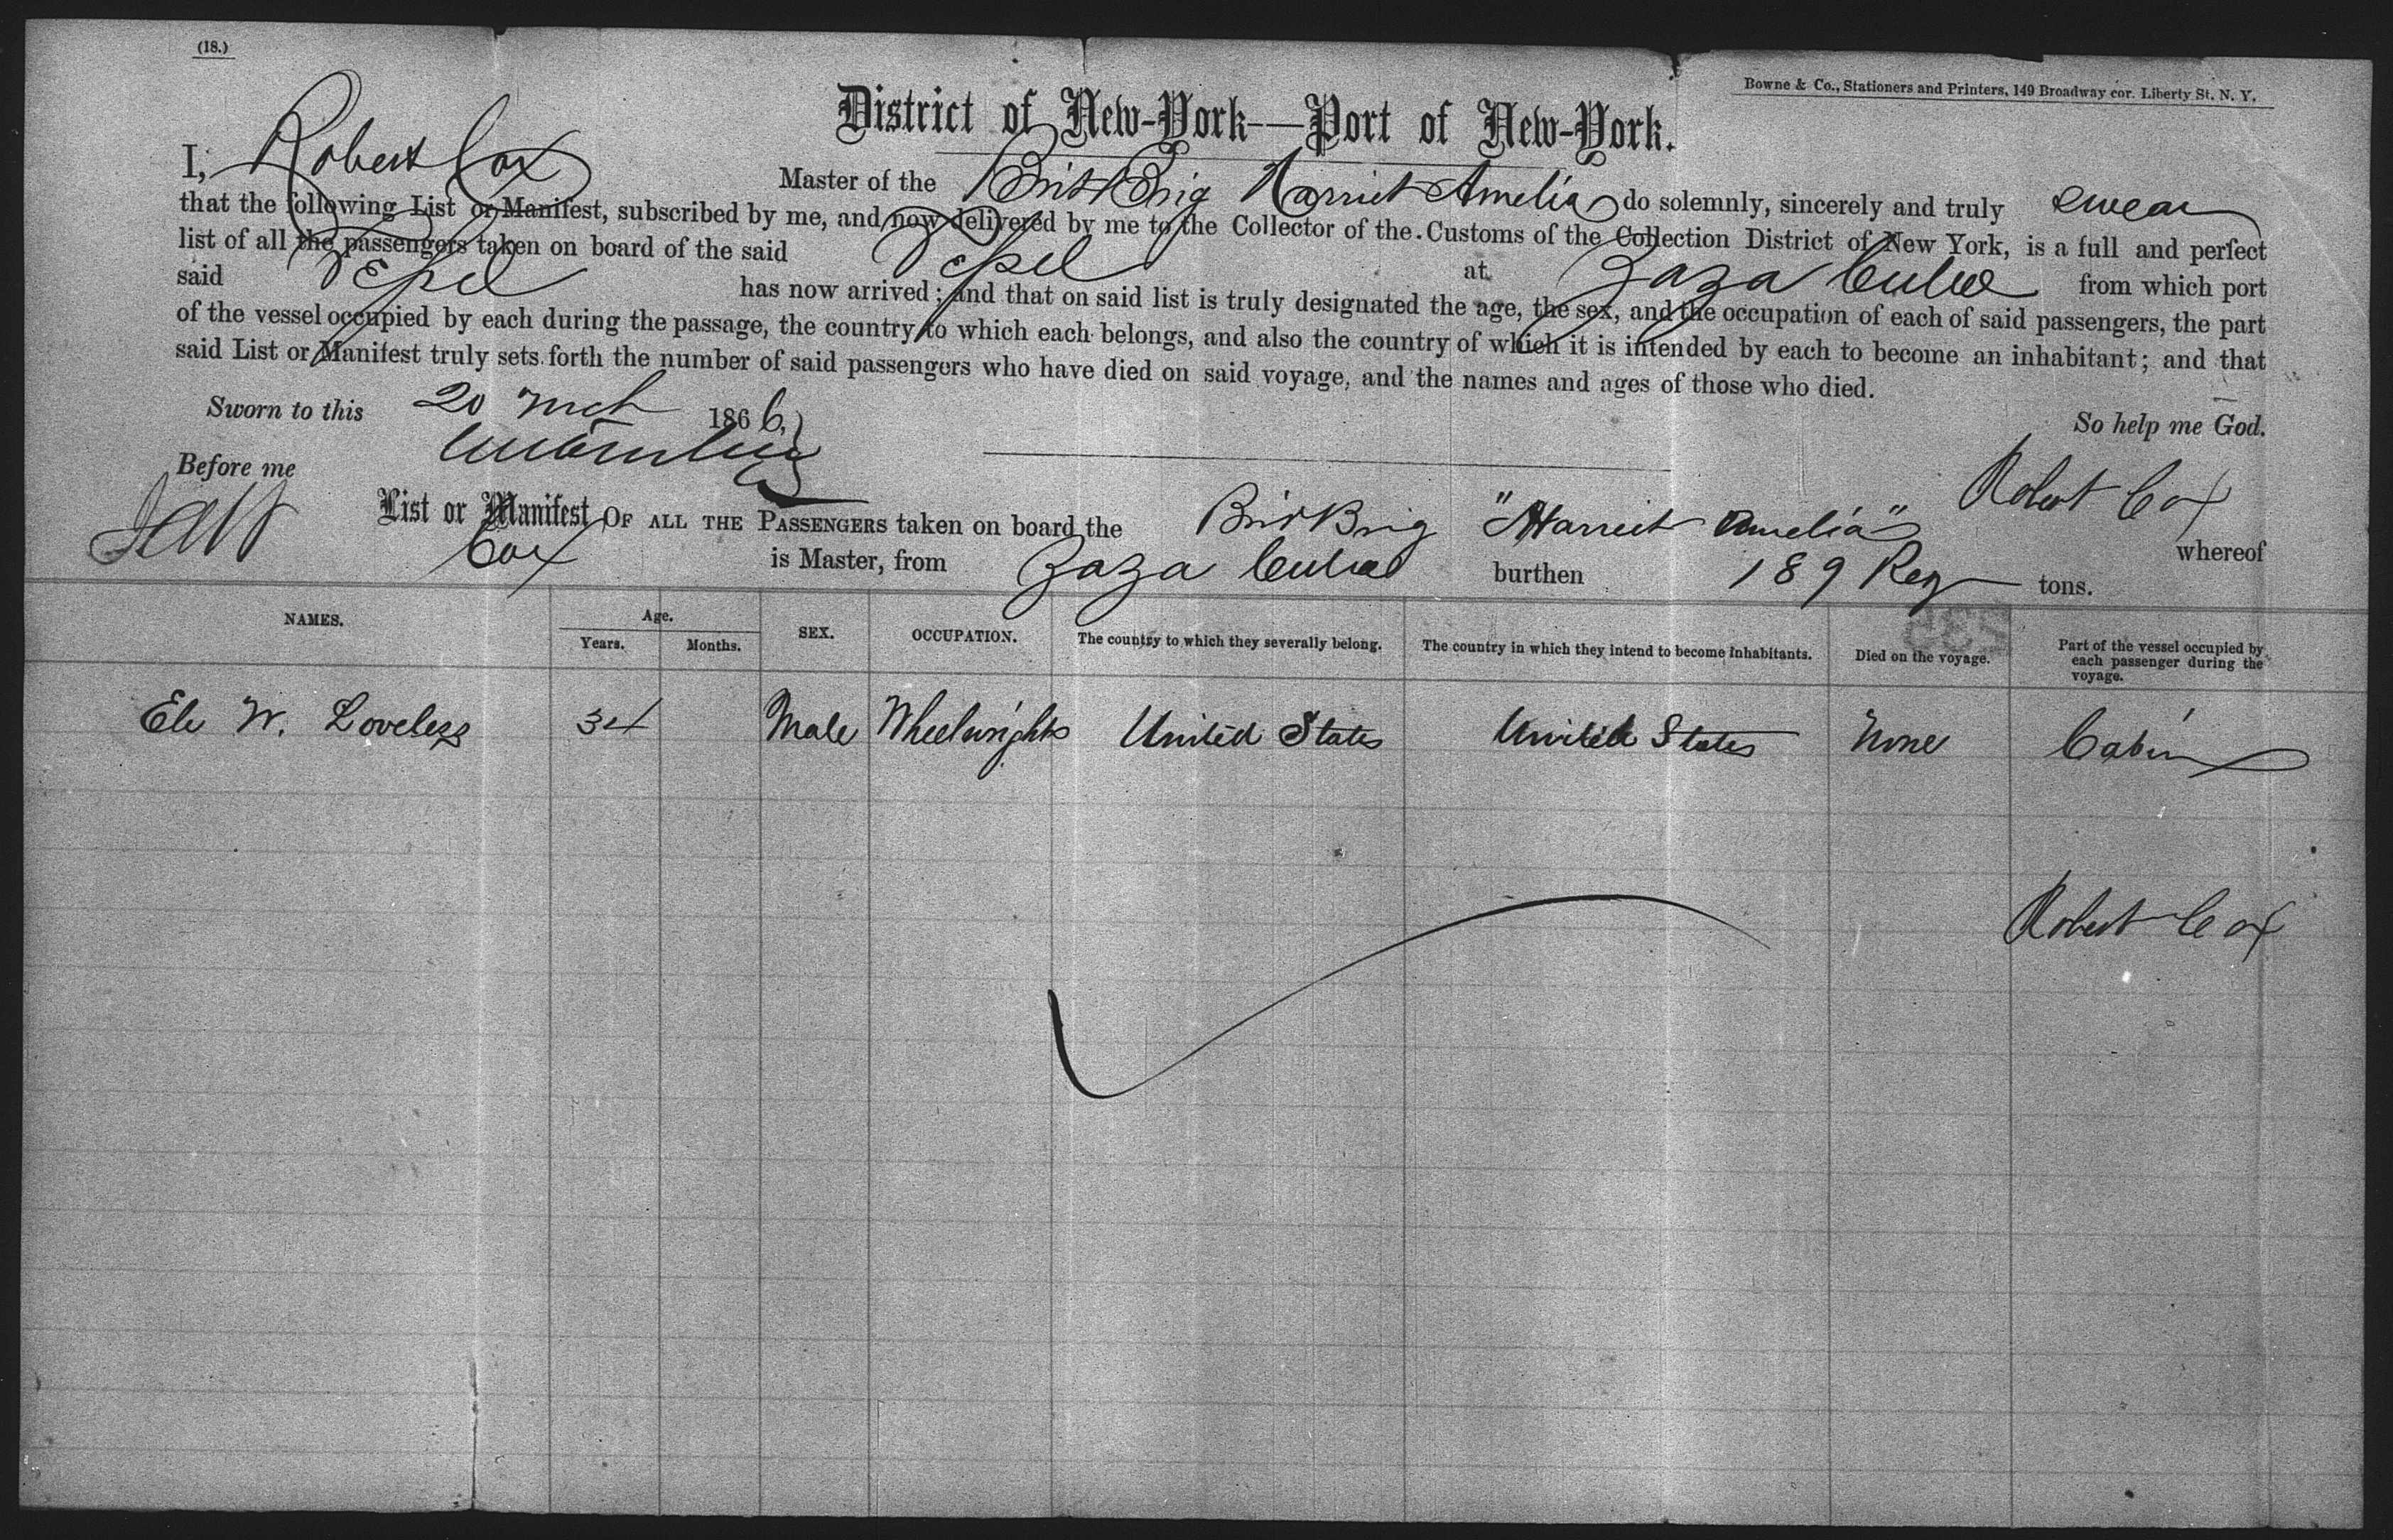 (18.)
Bowne & Co., Stationers and Printers, 149 Broadway cor. Liberty St. N. Y.
District of New-York—Port of New-York.
I, Robert Cox Master of the Brit Brig Harriet Amelia do solemnly, sincerely and truly swear
that the following List or Manifest, subscribed by me, and now delivered by me to the Collector of the Customs of the Collection District of New York, is a full and perfect
list of all the passengers taken on board of the said Vessel at Zaza Cuba from which port
said Vessel has now arrived; and that on said list is truly designated the age, the sex, and the occupation of each of said passengers, the part
of the vessel occupied by each during the passage, the country to which each belongs, and also the country of which it is intended by each to become an inhabitant; and that
said List or Manifest truly sets forth the number of said passengers who have died on said voyage, and the names and ages of those who died.
Sworn to this 20 Mch 1866, So help me God.
Before me Robert Cox
List or Manifest OF ALL THE PASSENGERS taken on board the Brit Brig "Harriet Amelia" whereof
Cox is Master, from Zaza Cuba burthen 189 Reg tons.
NAMES. Age. Years. Months. SEX. OCCUPATION. The country to which they severally belong. The country in which they intend to become inhabitants. Died on the voyage. Part of the vessel occupied by each passenger during the voyage.
Eli W. Loveless 34 Male Wheelwrights United States United States None Cabin
Robert Cox